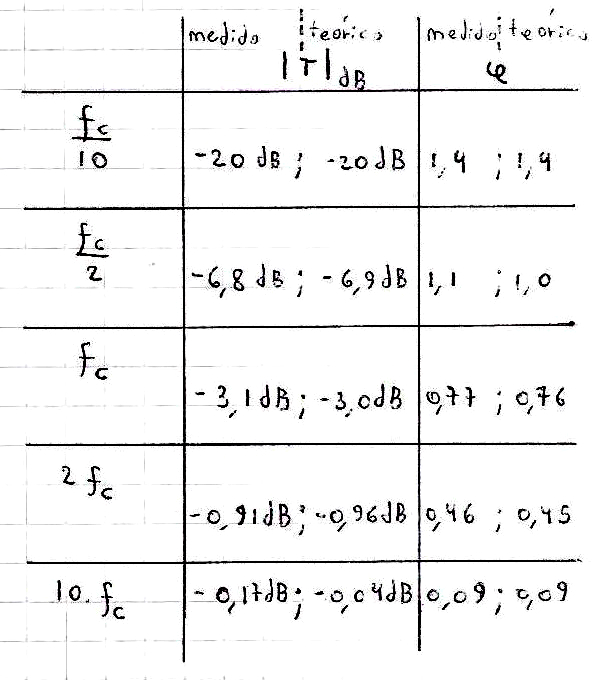 medido teórico medido teórico
|T|dB φ
fc/10 -20 dB ; -20 dB 1,4 ; 1,4
fc/2 -6,8 dB ; -6,9 dB 1,1 ; 1,0
fc -3,1 dB ; -3,0 dB 0,77 ; 0,76
2 fc -0,91 dB ; -0,96 dB 0,46 ; 0,45
10. fc -0,17 dB ; -0,04 dB 0,09 ; 0,09